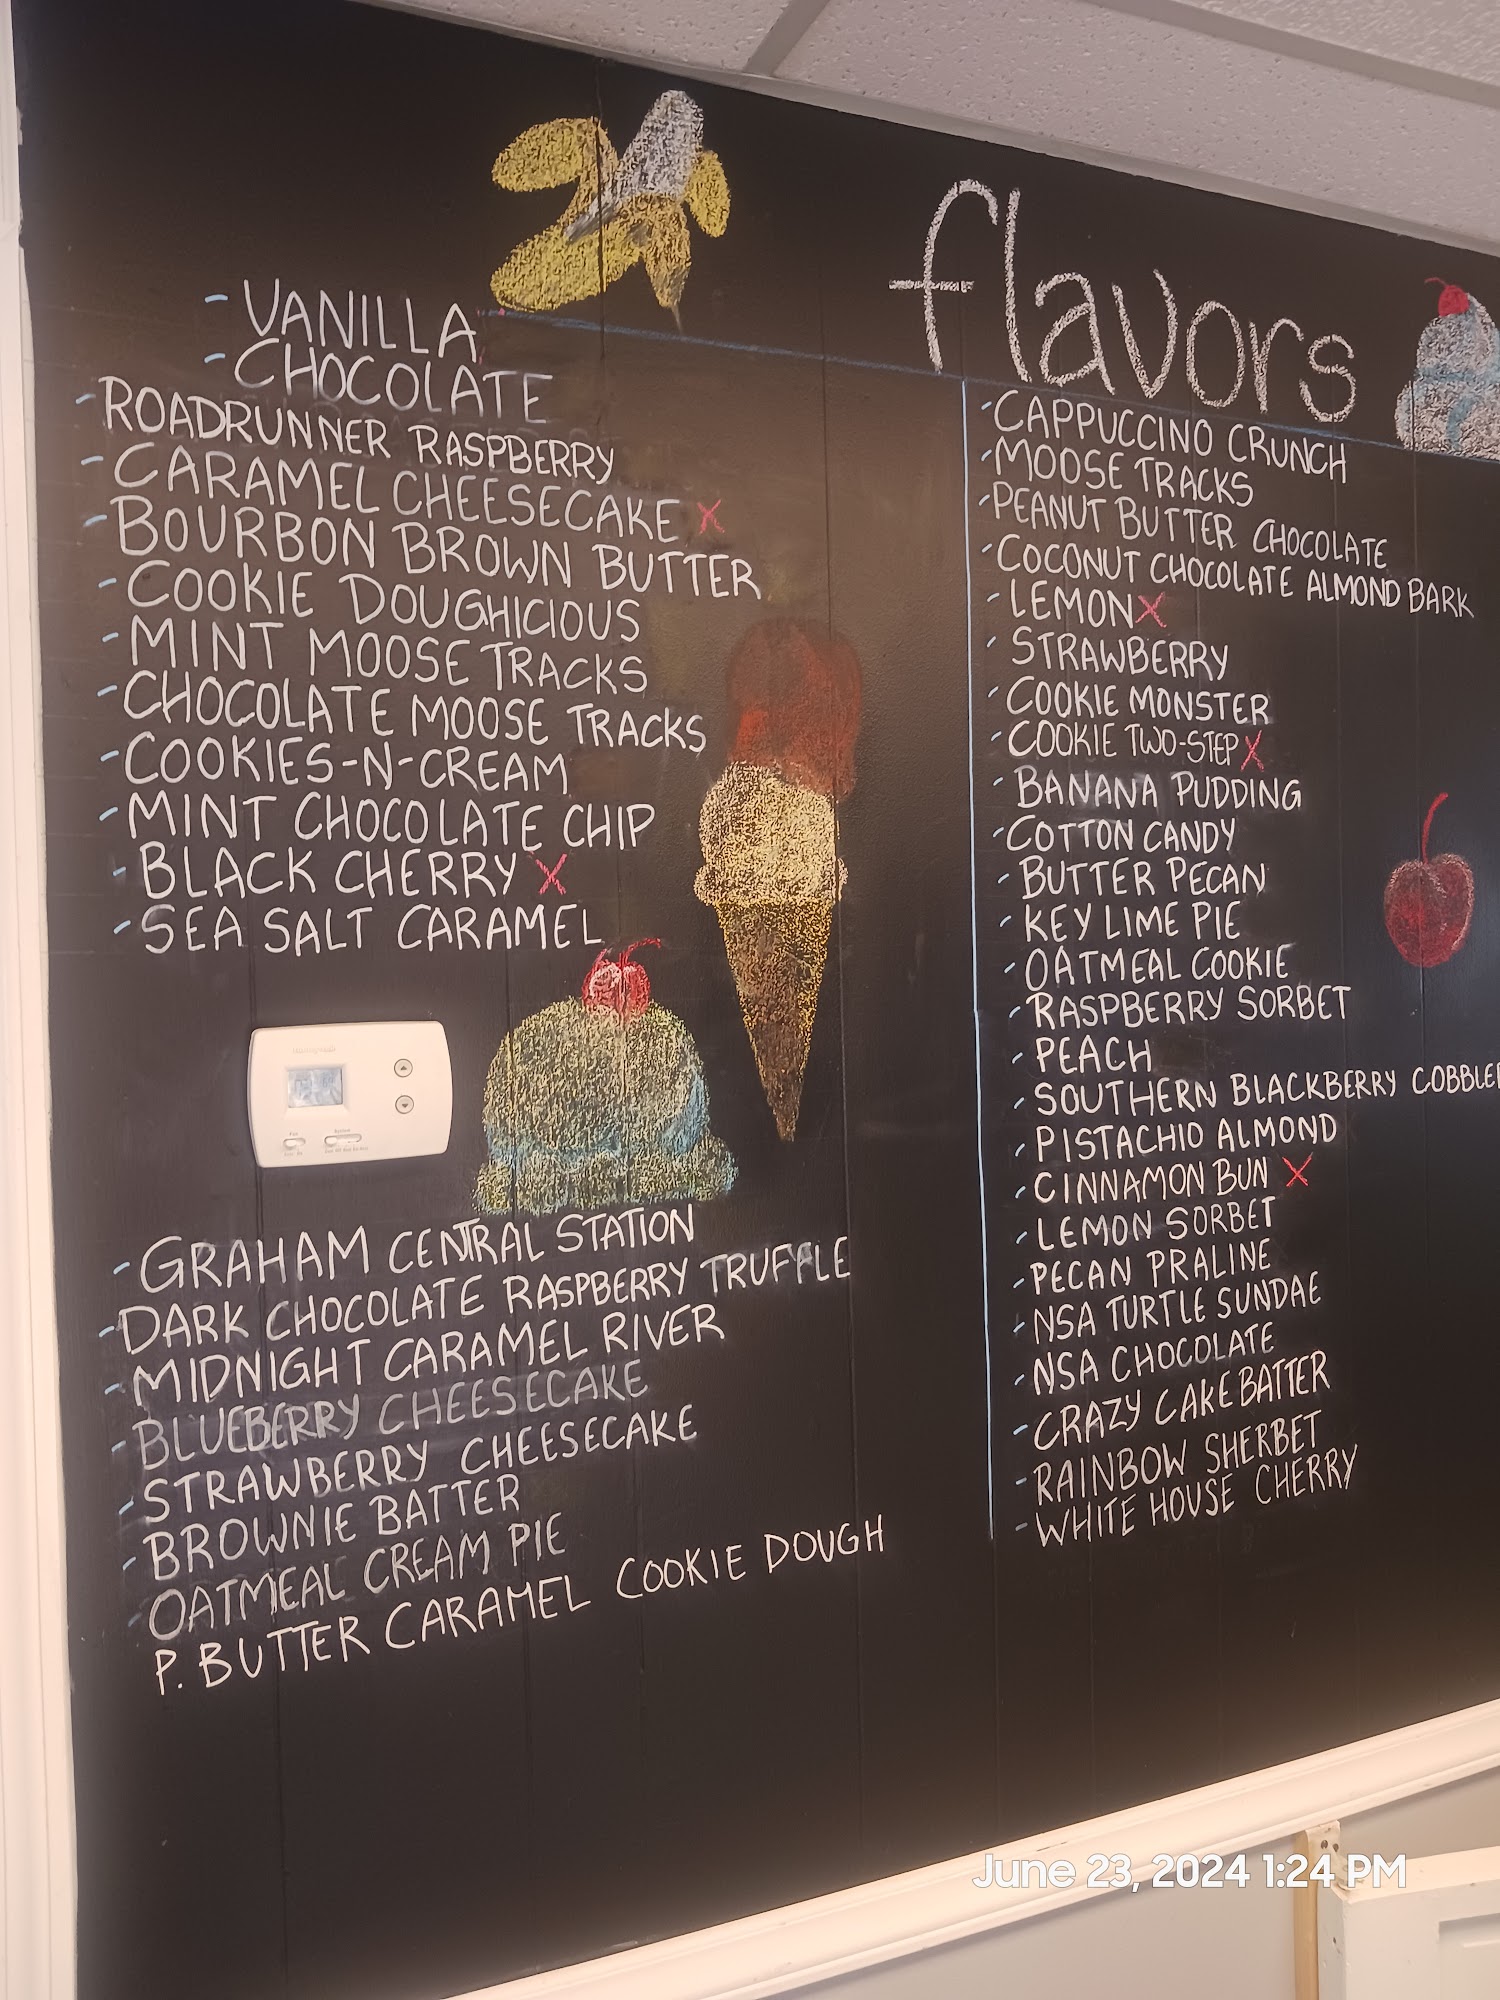 flavors
- VANILLA
- CHOCOLATE
- ROADRUNNER RASPBERRY
- CARAMEL CHEESECAKE X
- BOURBON BROWN BUTTER
- COOKIE DOUGHICIOUS
- MINT MOOSE TRACKS
- CHOCOLATE MOOSE TRACKS
- COOKIES-N-CREAM
- MINT CHOCOLATE CHIP
- BLACK CHERRY X
- SEA SALT CARAMEL
- GRAHAM CENTRAL STATION
- DARK CHOCOLATE RASPBERRY TRUFFLE
- MIDNIGHT CARAMEL RIVER
- BLUEBERRY CHEESECAKE
- STRAWBERRY CHEESECAKE
- BROWNIE BATTER
- OATMEAL CREAM PIE
P. BUTTER CARAMEL COOKIE DOUGH
- CAPPUCCINO CRUNCH
- MOOSE TRACKS
- PEANUT BUTTER CHOCOLATE
- COCONUT CHOCOLATE ALMOND BARK
- LEMON X
- STRAWBERRY
- COOKIE MONSTER
- COOKIE TWO-STEP X
- BANANA PUDDING
- COTTON CANDY
- BUTTER PECAN
- KEY LIME PIE
- OATMEAL COOKIE
- RASPBERRY SORBET
- PEACH
- SOUTHERN BLACKBERRY COBBLER
- PISTACHIO ALMOND
- CINNAMON BUN X
- LEMON SORBET
- PECAN PRALINE
- NSA TURTLE SUNDAE
- NSA CHOCOLATE
- CRAZY CAKE BATTER
- RAINBOW SHERBET
- WHITE HOUSE CHERRY
June 23, 2024 1:24 PM